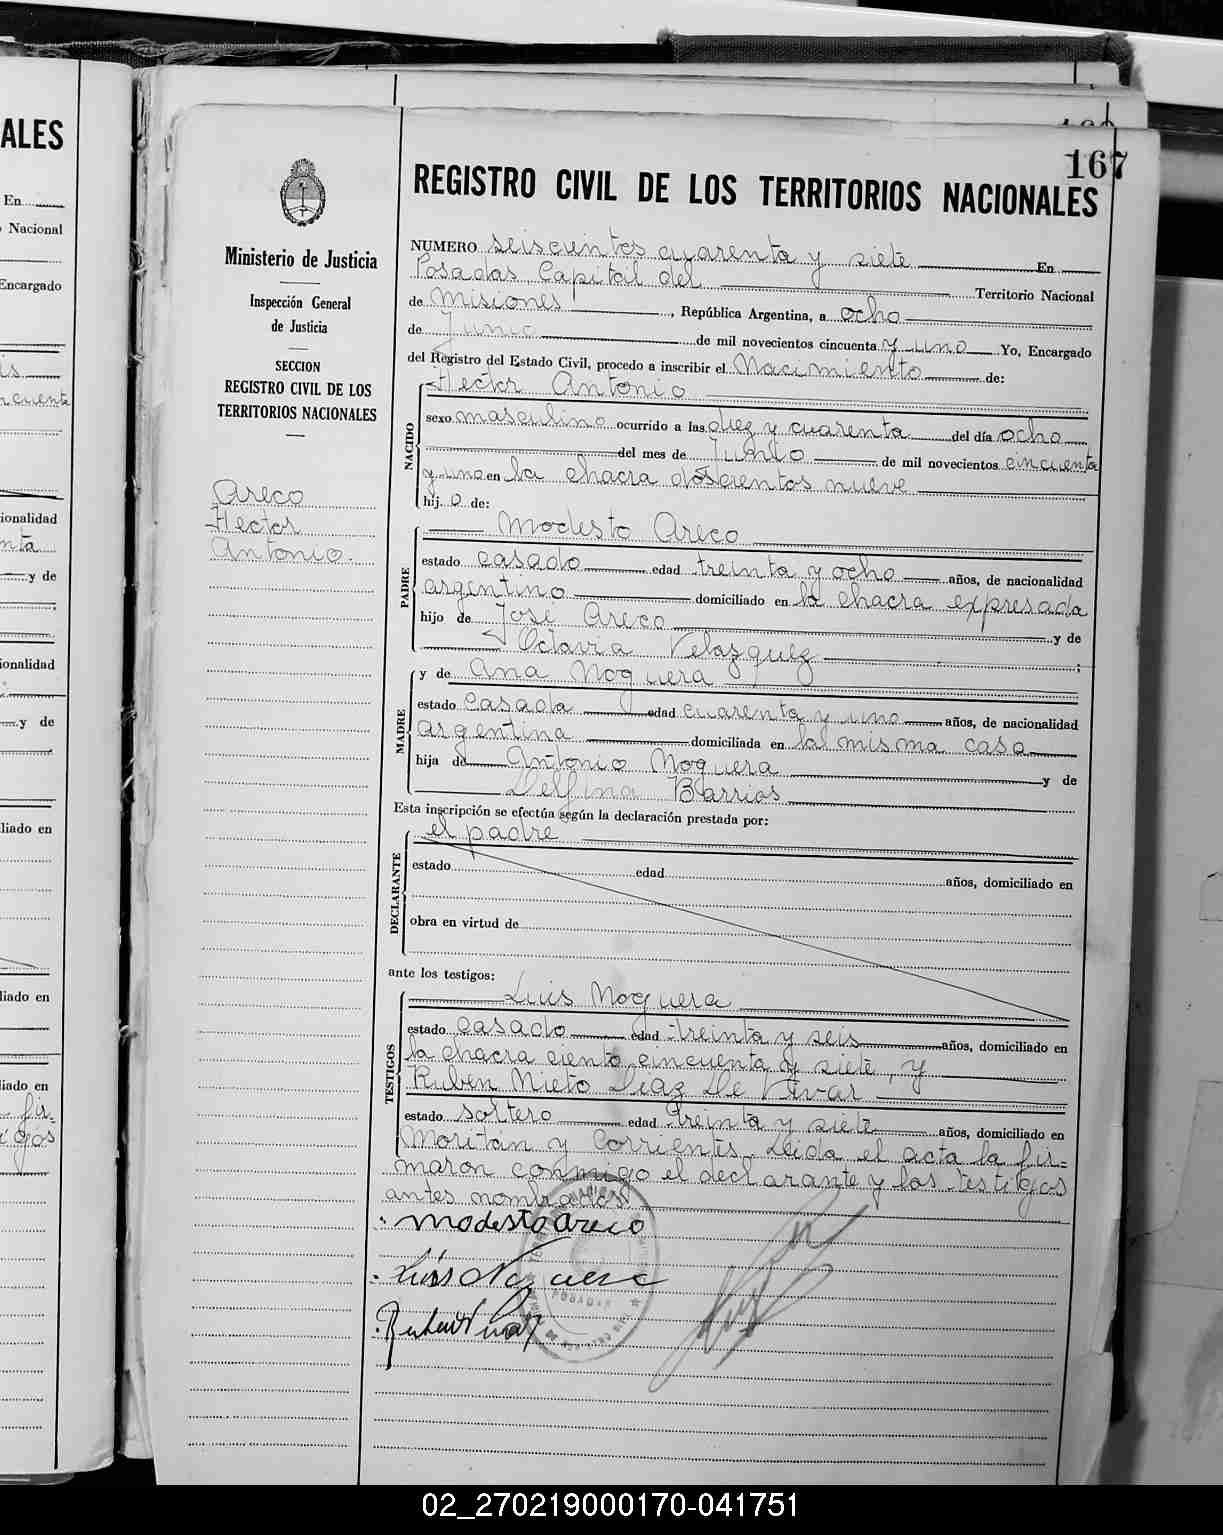 ALES
En
Nacional
Encargado
is
ncuenta
ionalidad
nta
y de
ionalidad
y de
liado en
liado en
liado en
fir-
igos
167
REGISTRO CIVIL DE LOS TERRITORIOS NACIONALES
Ministerio de Justicia
Inspección General
de Justicia
SECCION
REGISTRO CIVIL DE LOS
TERRITORIOS NACIONALES
Areco
Hector
Antonio.
NUMERO seiscientos cuarenta y siete En
Posadas Capital del Territorio Nacional
de Misiones, República Argentina, a ocho
de Junio de mil novecientos cincuenta y uno Yo, Encargado
del Registro del Estado Civil, procedo a inscribir el Nacimiento de:
NACIDO
Hector Antonio
sexo masculino ocurrido a las diez y cuarenta del día ocho
del mes de Junio de mil novecientos cincuenta
y uno en la chacra doscientos nueve
hijo de:
PADRE
Modesto Areco
estado casado edad treinta y ocho años, de nacionalidad
argentino domiciliado en la chacra expresada
hijo de José Areco y de
Octavia Velazquez;
MADRE
y de Ana Noguera
estado casada edad cuarenta y uno años, de nacionalidad
argentina domiciliada en la misma casa
hija de Antonio Noguera y de
Delfina Barrios
Esta inscripción se efectúa según la declaración prestada por:
DECLARANTE
el padre
estado edad años, domiciliado en
obra en virtud de
ante los testigos:
TESTIGOS
Luis Noguera
estado casado edad treinta y seis años, domiciliado en
la chacra ciento cincuenta y siete, y
Ruben Nieto Diaz De Vivar
estado soltero edad treinta y siete años, domiciliado en
Moritan y Corrientes. Leida el acta la fir=
maron conmigo el declarante y los testigos
antes nombrados
Modesto Areco
Luis Noguera
02_270219000170-041751